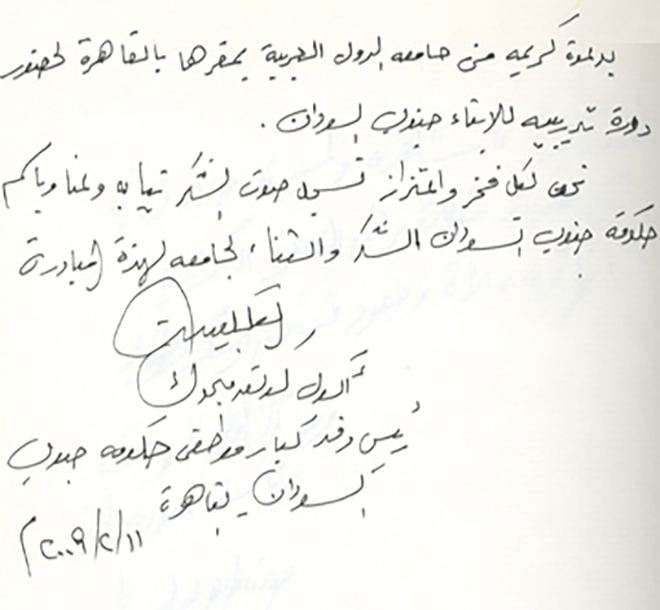 بدعوة كريمه من جامعه الدول العربية بمقرها بالقاهرة لحضور
دورة تدريبيه للابناء جنوب السودان .
نحن بكل فخر واعتزاز نسجل صوت الشكر نيابه
حكومة جنوب السودان الشكر والثناء لجامعه لهذة المبادرة
رئيس وفد كبار موظفى حكومه جنوب
السودان بقاهرة
١١/٢/٢٠٠٩م